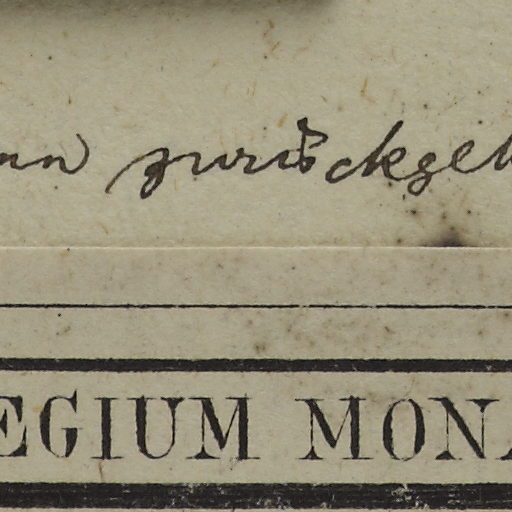 zurückge
EGIUM MON